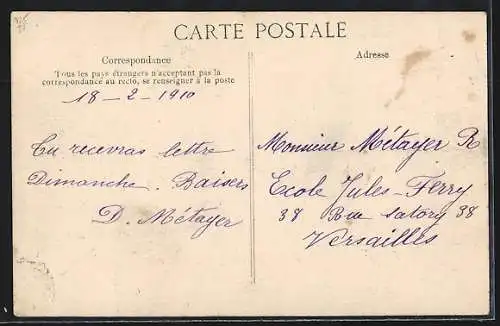 CARTE POSTALE
Correspondance
Tous les pays étrangers n'acceptant pas la
correspondance au recto, se renseigner à la poste
18 - 2 - 1910
Tu recevras lettre
Dimanche. Baisers
D. Métayer
Adresse
Monsieur Métayer R
Ecole Jules-Ferry
38 Rue Satory 38
Versailles